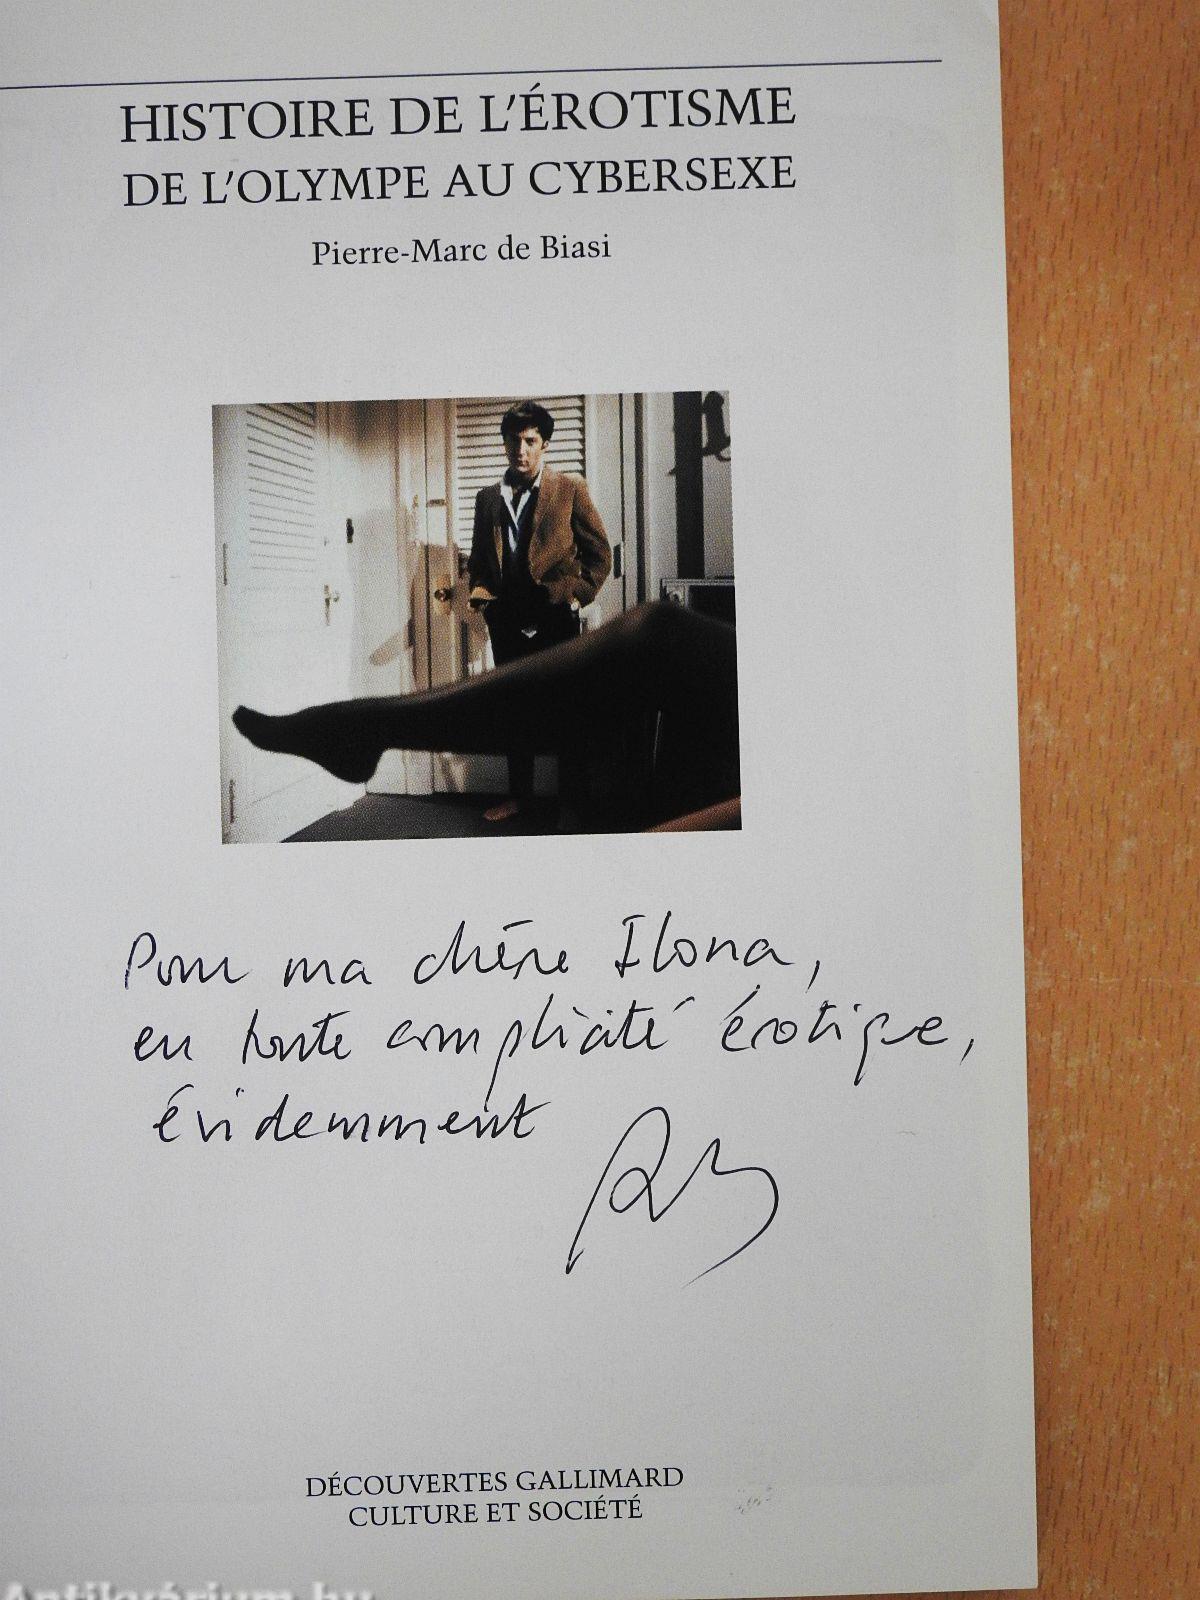 HISTOIRE DE L'ÉROTISME
DE L'OLYMPE AU CYBERSEXE
Pierre-Marc de Biasi
Pour ma chère Ilona,
en toute complicité érotique,
évidemment
DÉCOUVERTES GALLIMARD
CULTURE ET SOCIÉTÉ
Antikvárium.hu